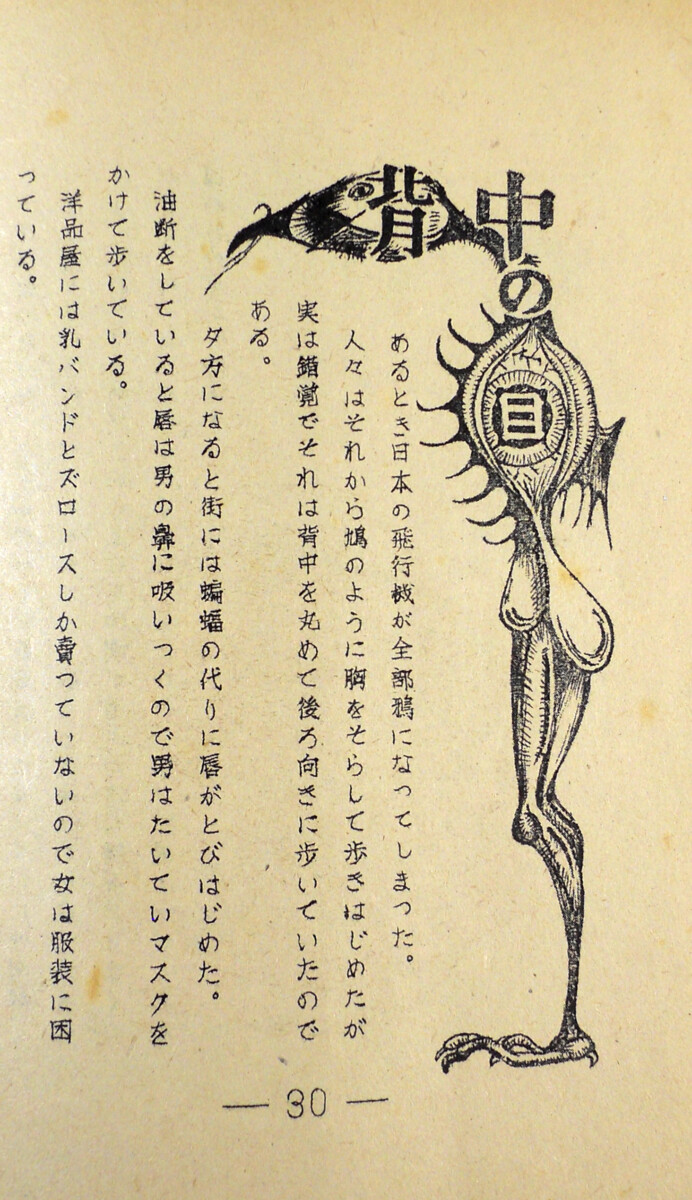 背中の目
あるとき日本の飛行機が全部鴉になってしまった。
人々はそれから鳩のように胸をそらして歩きはじめたが
実は錯覚でそれは背中を丸めて後ろ向きに歩いていたので
ある。
夕方になると街には蝙蝠の代りに唇がとびはじめた。
油断をしていると唇は男の鼻に吸いつくので男はたいていマスクを
かけて歩いている。
洋品屋には乳バンドとズロースしか賣つていないので女は服装に困
っている。
— 30 —